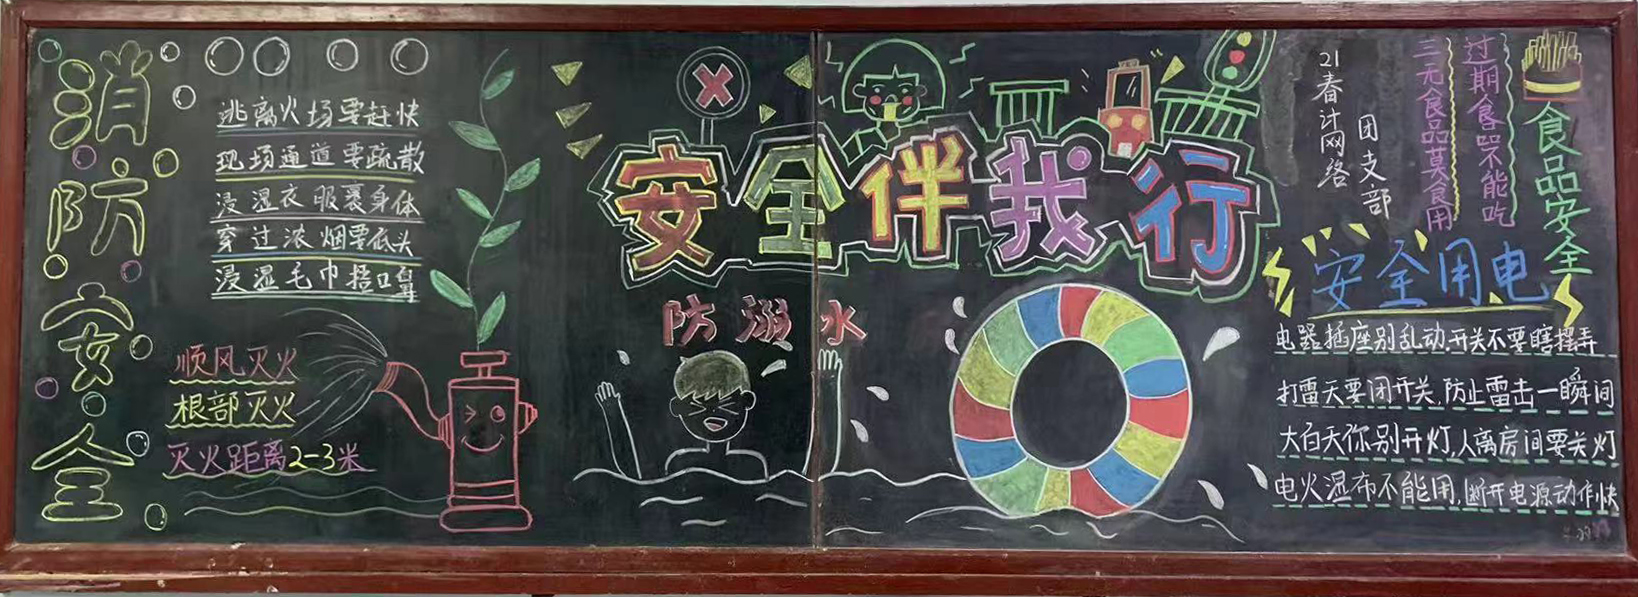 消防安全
逃离火场要赶快
现场通道要疏散
浸湿衣服裹身体
穿过浓烟要低头
浸湿毛巾捂口鼻
顺风灭火
根部灭火
灭火距离2-3米
安全伴我行
防溺水
21春计网络
团支部
食品安全
过期食品不能吃
三无食品莫食用
安全用电
电器插座别乱动.开关不要瞎摆弄
打雷天要闭开关,防止雷击一瞬间
大白天你别开灯,人离房间要关灯
电火湿布不能用,断开电源动作快